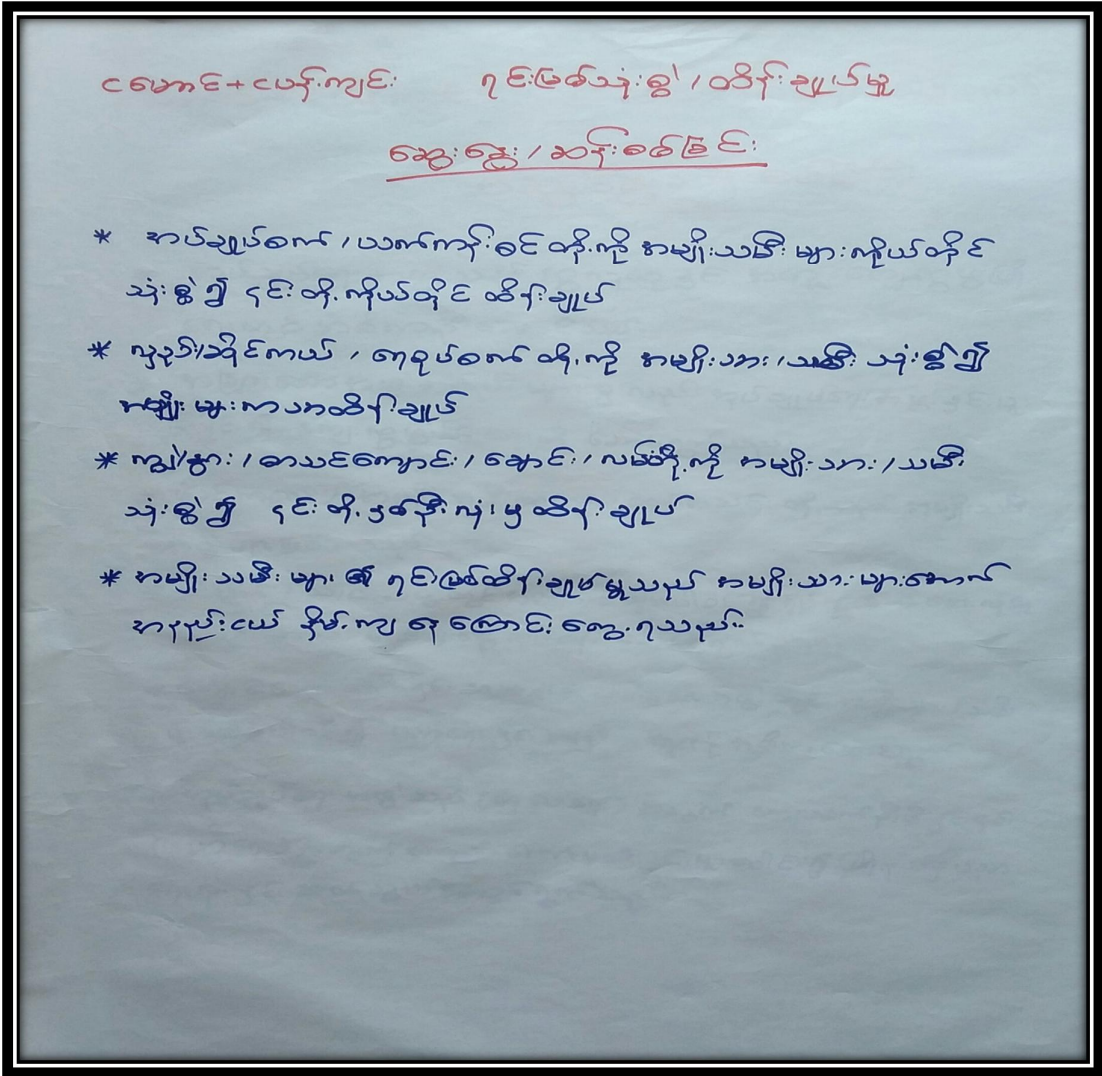 ငမောင်+ငပန်းကျင်း ရင်းမြစ်သုံးစွဲ/ထိန်းချုပ်မှု
ဆွေးနွေး/ဆန်းစစ်ခြင်း
* အပ်ချုပ်စက်/ယက်ကန်းစင် တို့ကို အမျိုးသမီး များကိုယ်တိုင်
သုံးစွဲ၍ ၎င်းတို့ကိုယ်တိုင် ထိန်းချုပ်
* လှည်း/ဆိုင်ကယ်/ရေစုပ်စက် တို့ကို အမျိုးသား/သမီး သုံးစွဲ၍
အမျိုးများကသာထိန်းချုပ်
* ကျွဲ/နွား/စာသင်ကျောင်း/ချောင်း/လမ်းတို့ကို အမျိုးသား/သမီး
သုံးစွဲ၍ ၎င်းတို့နှစ်ဦးလုံးမှ ထိန်းချုပ်
* အမျိုးသမီးများ၏ ရင်းမြစ်ထိန်းချုပ်မှုသည် အမျိုးသားများအောက်
အနည်းငယ် နိမ့်ကျ နေကြောင်း တွေ့ရသည်။